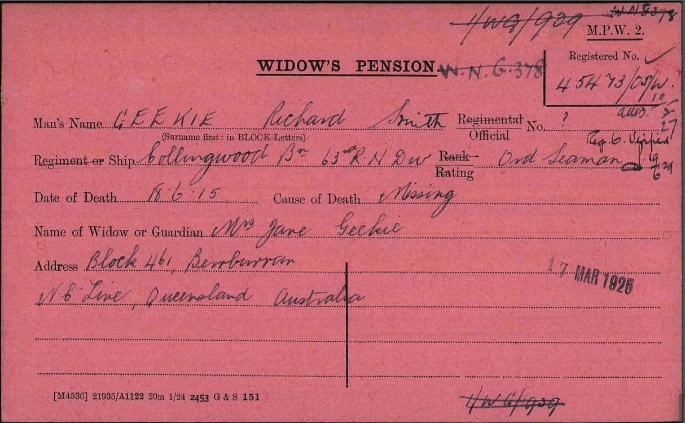 4WG/939 W.N.G378
M.P.W. 2.
WIDOW'S PENSION. W.N.G.378
Registered No.
45473/OS/W.
Man's Name GEEKIE Richard Smith Regimental Official No. ?
(Surname first: in BLOCK Letters)
Regiment or Ship Collingwood Bn 63rd R N Div Rank Rating Ord Seaman
Date of Death 18.6.15 Cause of Death Missing
Name of Widow or Guardian Mrs Jane Geekie
Address Block 461, 
17 MAR 1925
N C Line, Queensland Australia
[M4536] 21935/A1122 20m 1/24 2453 G & S 151
4WG/939